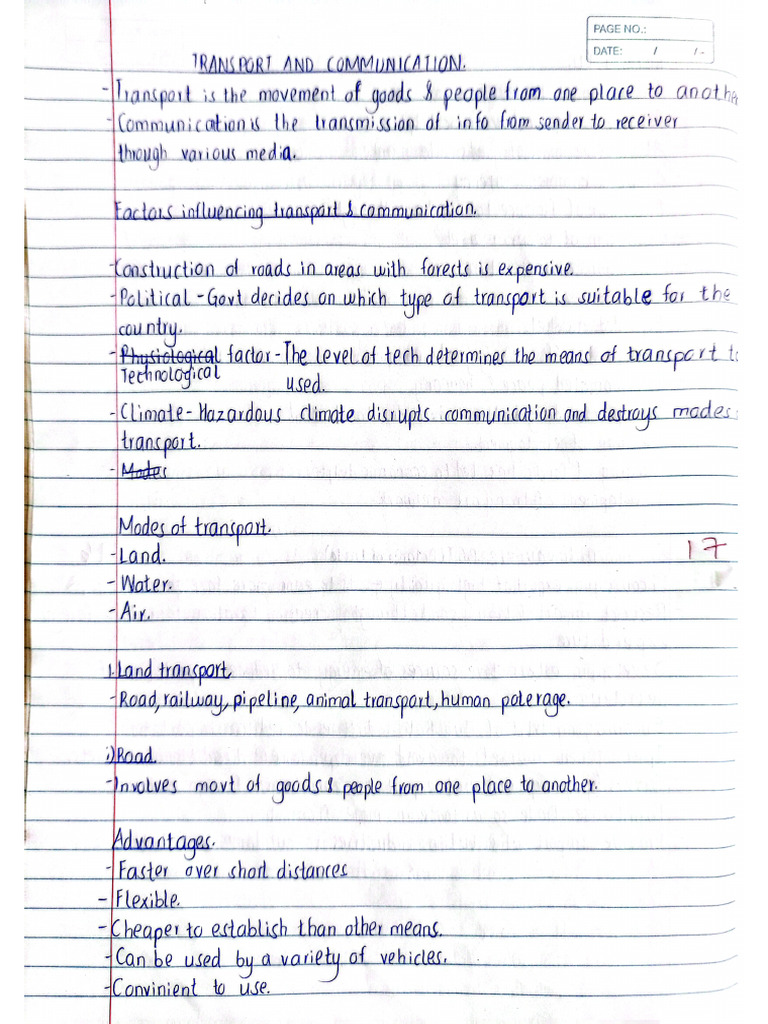 PAGE NO.:
DATE: / / -
TRANSPORT AND COMMUNICATION.
- Transport is the movement of goods & people from one place to another
- Communication is the transmission of info from sender to receiver
through various media.
Factors influencing transport & communication.
- Construction of roads in areas with forests is expensive.
- Political - Govt decides on which type of transport is suitable for the
country.
- Physiological factor - The level of tech determines the means of transport to
Technological used.
- Climate - Hazardous climate disrupts communication and destroys modes
transport.
- Modes
Modes of transport.
- Land.
17
- Water.
- Air.
1. Land transport.
- Road, railway, pipeline, animal transport, human poterage.
i) Road.
- Involves movt of goods & people from one place to another.
Advantages.
- Faster over short distances
- Flexible.
- Cheaper to establish than other means.
- Can be used by a variety of vehicles.
- Convinient to use.